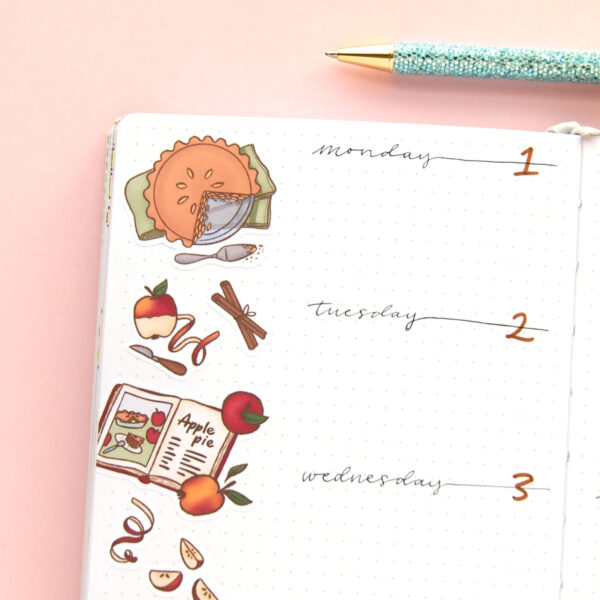 monday 1
tuesday 2
Apple
pie
wednesday 3